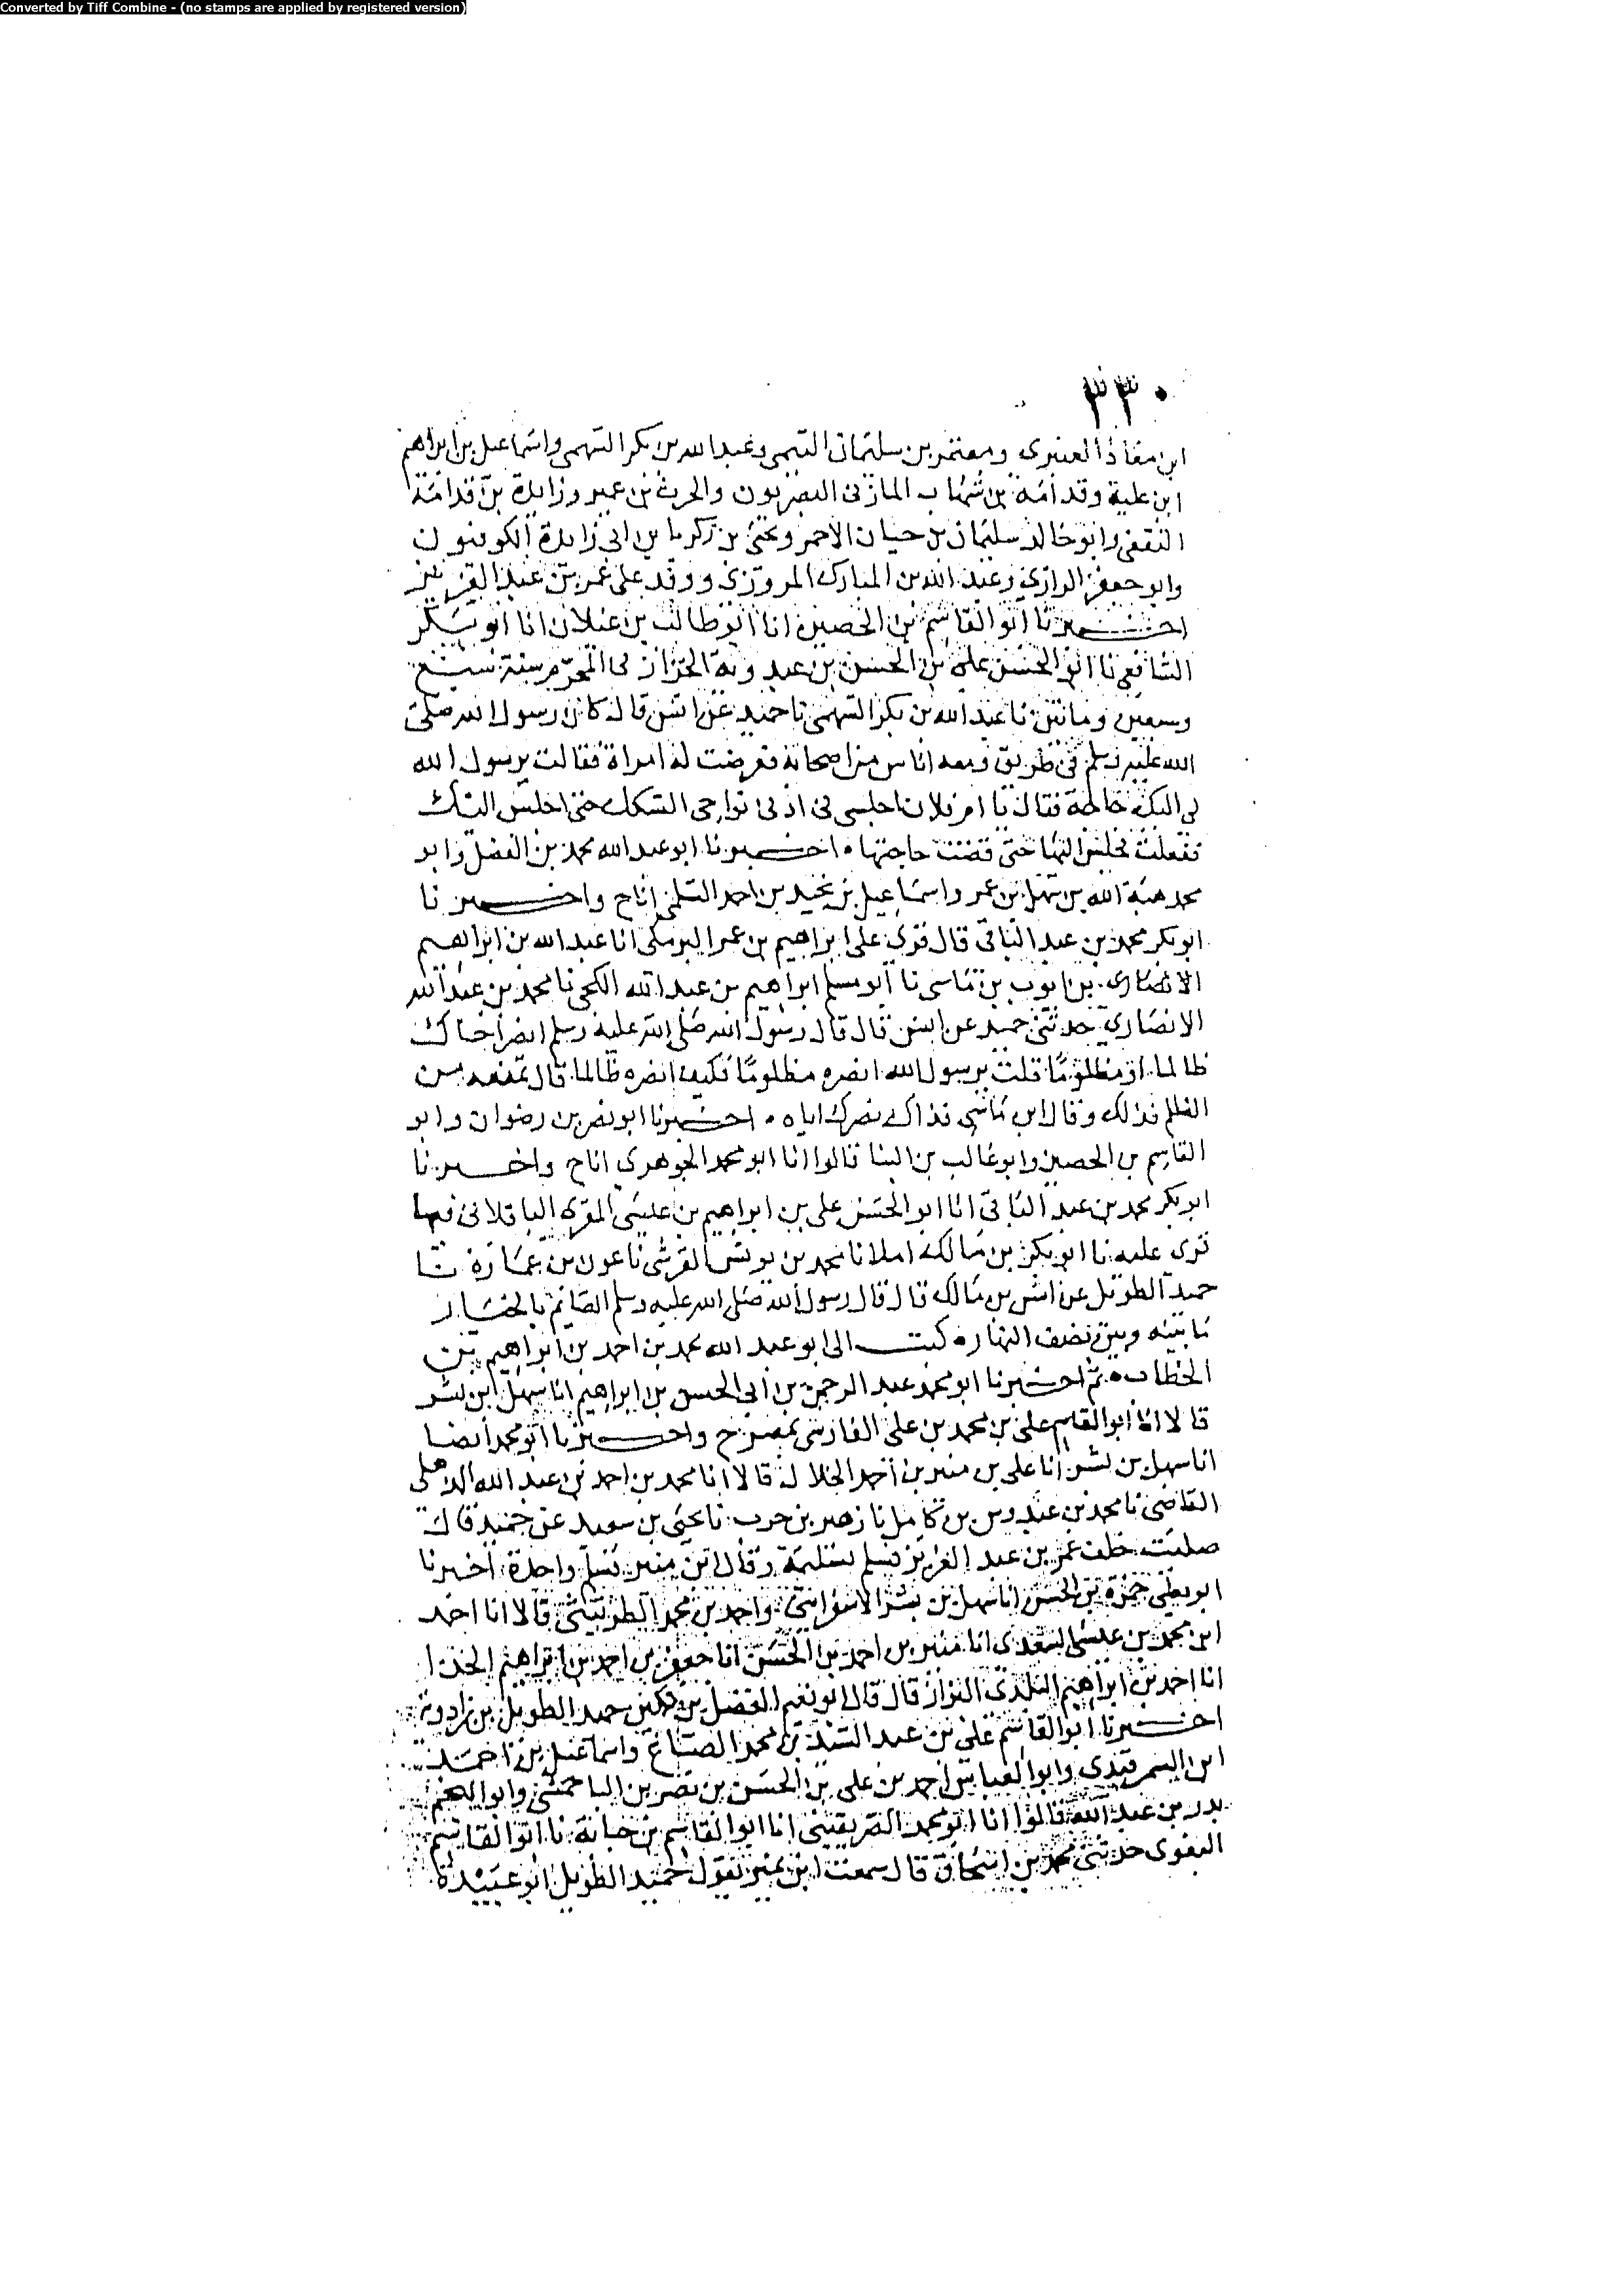 Converted by Tiff Combine - (no stamps are applied by registered version)
٣٣٠
ابن معاذ العنبرى ومعتمر بن سليمان التيمى وعبد الله بن بكر السهمى واسماعيل بن ابراهيم
ابن علية وقدامة بن شهاب المازنى البصريون والحرث بن عمير وزايدة بن قدامة
الثقفى وابو خالد سليمان بن حيان الاحمر ويحيى بن زكريا بن ابى زايدة الكوفيون
وابو جعفر الرازي وعبد الله بن المبارك المروزى ووفد على عمر بن عبد العزيز
اخبرنا ابو القاسم بن الحصين انا ابو طالب بن غيلان انا ابو بكر
الشافعى نا ابو الحسن على بن الحسن بن عبدويه الخزاز فى المحرم سنة سبع
وسبعين ومائتين نا عبد الله بن بكر السهمى نا حميد عن انس قال كان رسول الله صلى
الله عليه وسلم فى طريق ومعه اناس من اصحابه فعرضت له امراة فقالت يرسول الله
لى اليك حاجة فقال يا ام فلان اجلسى فى ادنى نواحى السكك حتى اجلس اليك
ففعلت فجلس اليها حتى قضت حاجتها ۰ اخبرنا ابو عبد الله محمد بن الفضل وابو
محمد هبة الله بن سهل بن عمر واسماعيل بن نجيد بن احمد السلمى اناح واخبرنا
ابو بكر محمد بن عبد الباقى قال قرئ على ابراهيم بن عمر البرمكى انا عبد الله بن ابراهيم
الانصارى بن ايوب بن ماسى نا ابو مسلم ابراهيم بن عبد الله الكجى نا محمد بن عبد الله
الانصاري حدثنى حميد عن انس قال قال رسول الله صلى الله عليه وسلم انصر اخاك
ظالما او مظلوما قلت يرسول الله انصره مظلوما فكيف انصره ظالما قال تمنعه من
الظلم فذلك وقال ابن ماسى فذاك نصرك اياه ۰ اخبرنا ابو نصر بن رضوان وابو
القاسم بن الحصين وابو غالب بن البنا قالوا انا ابو محمد الجوهرى اناح واخبرنا
ابو بكر محمد بن عبد الباقى انا ابو الحسن على بن ابراهيم بن عيسى المقرى الباقلانى فيما
قرى عليه نا ابو بكر بن مالك املا نا محمد بن يونس القرشى نا عون بن عمارة نا
حميد الطويل عن انس بن مالك قال قال رسول الله صلى الله عليه وسلم الصايم بالخيار
ما بينه وبين نصف النهار ه كتب الى ابو عبد الله محمد بن احمد بن ابراهيم بن
الخطاب ۰ ثم اخبرنا ابو محمد عبد الرحمن بن أبى الحسن بن ابراهيم انا سهل ابن بشر
قالا انا ابو القاسم على بن محمد بن على الفارسى بمصر ح واخبرنا ابو محمد أيضا
انا سهل بن بشر انا على بن منير بن أحمد الخلال قالا انا محمد بن احمد بن عبد الله الذهلى
القاضى نا محمد بن عبدوس بن كامل نا زهير بن حرب نا يحيى بن سعيد عن حميد قال
صليت خلف عمر بن عبد العزيز فسلم تسليمة وقال ابن منير تسلم واحدة اخبرنا
ابو يعلى حمزة بن الحسن انا سهل بن بشر الاسفراينى واحمد بن محمد الطريثيثى قالا انا احمد
ابن محمد بن عيسى السعدى انا منير بن احمد بن الحسن انا جعفر بن احمد بن ابراهيم الحذا
انا احمد بن ابراهيم البلدى البزاز قال قال ابو نعيم الفضل بن دكين حميد الطويل بن زادويه
اخبرنا ابو القاسم على بن عبد السيد بن محمد الصباغ واسماعيل بن احمد
ابن السمرقندى وابو العباس احمد بن على بن الحسن بن نصر بن الباحمشى وابو النجم
بدر بن عبد الله قالوا انا ابو محمد الصريفينى انا ابو القاسم بن حبابة نا ابو القاسم
البغوى حدثنى محمد بن اسحاق قال سمعت ابن نمير يقول حميد الطويل ابو عبيدة